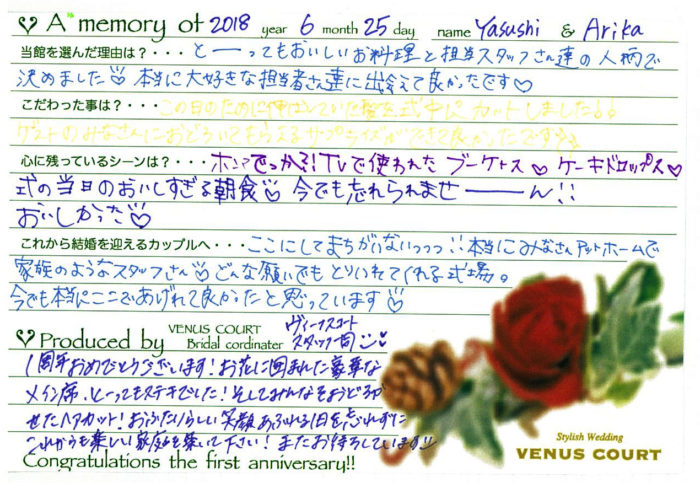 A memory of 2018 year 6 month 25 day name Yasushi & Arika
当館を選んだ理由は？・・・とーーってもおいしいお料理と担当スタッフさん達の人柄で
決めました♡ 本当に大好きな担当者さん達に出会えて良かったです♡
こだわった事は？・・・この日のために伸ばしていた髪を式中にカットしました!!
ゲストのみなさんにおどろいてもらえるサプライズができて良かったです
心に残っているシーンは？・・・ホンマでっか?!TVで使われた ブーケトス♡ ケーキドロップス♡
式の当日のおいしすぎる朝食♡ 今でも忘れられませーーん!!
おいしかった♡
これから結婚を迎えるカップルへ・・・ここにしてまちがいないっっっ!! 本当にみなさんアットホームで
家族のようなスタッフさん♡ どんな願いでもとりいれてくれる式場。
今でも本当にここであげれて良かったと思っています♡
Produced by VENUS COURT Bridal cordinater ヴィーナスコート スタッフ一同
1周年おめでとうございます！お花に囲まれた豪華な
メイン席、とーってもステキでした！そしてみんなをおどろか
せたヘアカット！おふたりらしい笑顔あふれる1日を忘れずに
これからも楽しい家庭を築いて下さい！またお待ちしています!!
Congratulations the first anniversary!!
Stylish Wedding
VENUS COURT